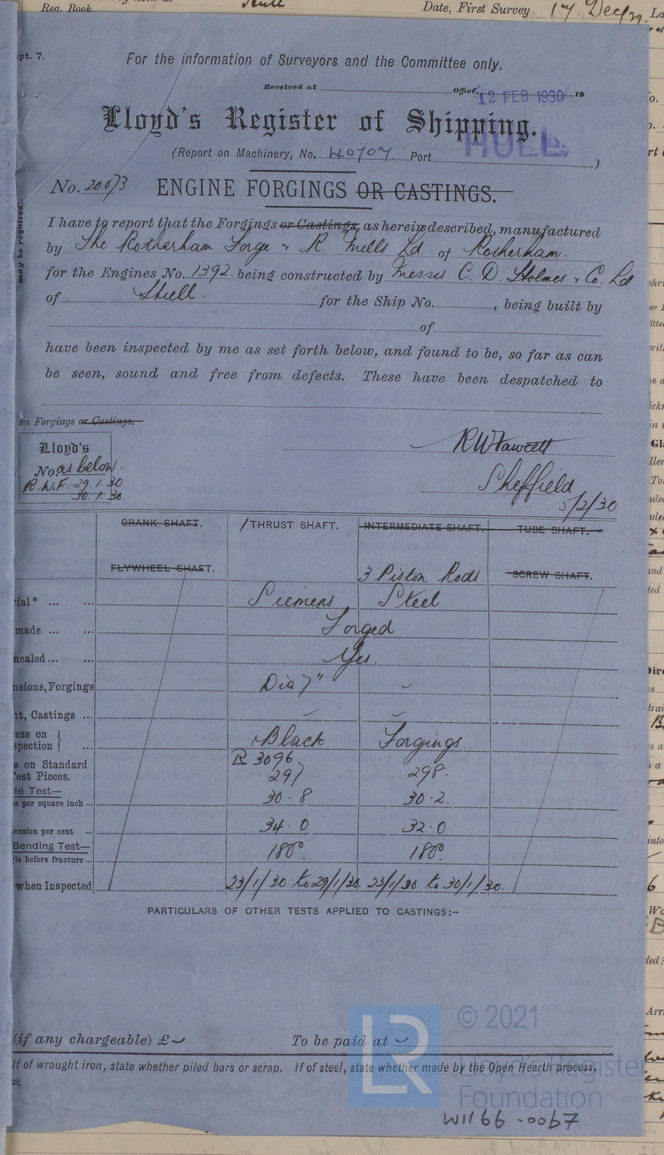 Reg. Book. Hull Date, First Survey 17 Dec/29
pt. 7.
For the information of Surveyors and the Committee only.
Received at Office, 19
12 FEB 1930
Lloyd's Register of Shipping.
HULL
(Report on Machinery, No. 40707 Port )
No. 20073 ENGINE FORGINGS OR CASTINGS.
I have to report that the Forgings or Castings, as herein described, manufactured
by The Rotherham Forge & R. Mills Ld of Rotherham.
for the Engines No. 1392 being constructed by Messrs C. D. Holmes & Co. Ld
of Hull. for the Ship No. , being built by
of
have been inspected by me as set forth below, and found to be, so far as can
be seen, sound and free from defects. These have been despatched to
may be required.
on Forgings or Castings.
Lloyd's
No. as below.
R.W.F. 29.1.30
30.1.30.
RWFawcett
Sheffield
5/2/30.
CRANK SHAFT. / THRUST SHAFT. INTERMEDIATE SHAFT. TUBE SHAFT.
FLYWHEEL SHAFT. 3 Piston Rods. SCREW SHAFT.
ial* ... ... Siemens Steel
made ... ... Forged
nealed ... ... Yes.
nsions, Forgings Dia 7"
ht, Castings ...
ess on
spection } Black Forgings.
s on Standard R 3096
est Pieces. 297 298.
le Test—
s per square inch ... 30.8 30.2.
ension per cent ... 34.0 32.0
Bending Test—
le before fracture... 180° 180°
when Inspected 23/1/30 to 29/1/30. 23/1/30 to 30/1/30.
PARTICULARS OF OTHER TESTS APPLIED TO CASTINGS:—
(if any chargeable) £ To be paid at
If of wrought iron, state whether piled bars or scrap. If of steel, state whether made by the Open Hearth process.
LR
© 2021
Lloyd's Register
Foundation
W1166-0067